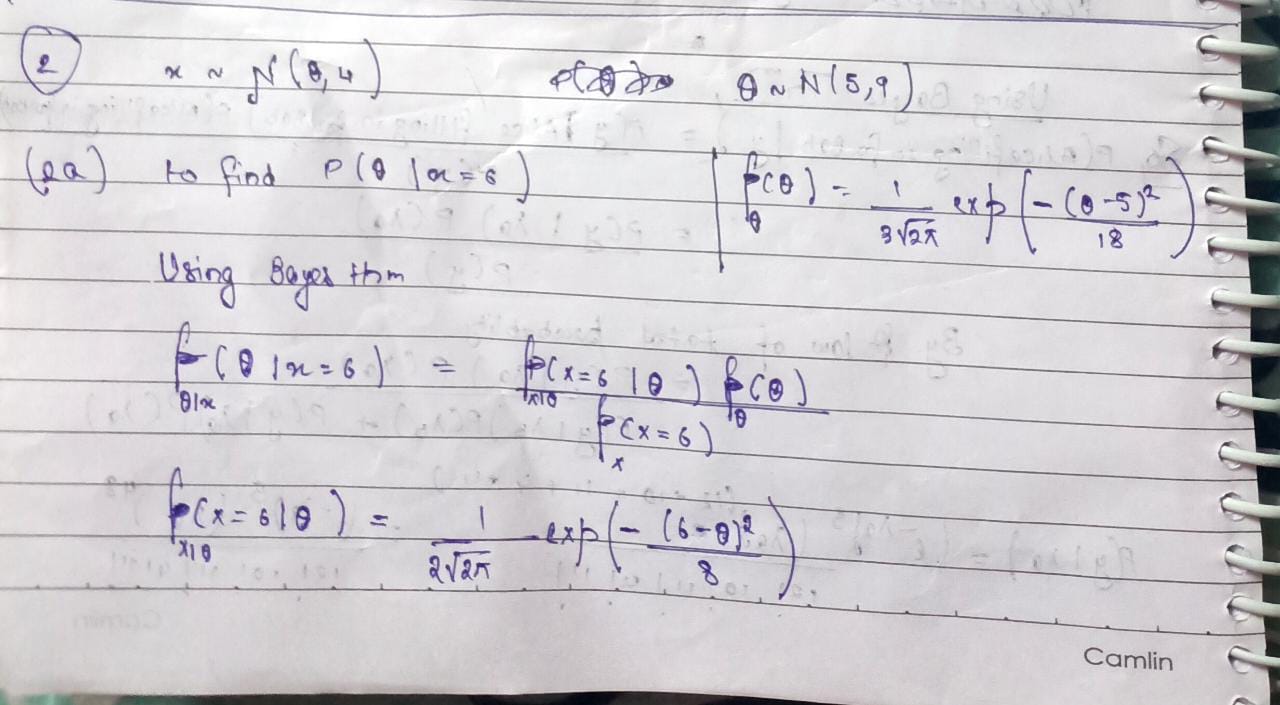 2 x ~ N(θ, 4) θ ~ N(5, 9)
(2a) to find P(θ | x=6)
f_θ(θ) = 1/(3√2π) exp(-(θ-5)²/18)
Using Bayes thm
f_θ|x(θ | x=6) = f_x|θ(x=6 | θ) f_θ(θ) / f_x(x=6)
f_x|θ(x=6 | θ) = 1/(2√2π) exp(-(6-θ)²/8)
Camlin